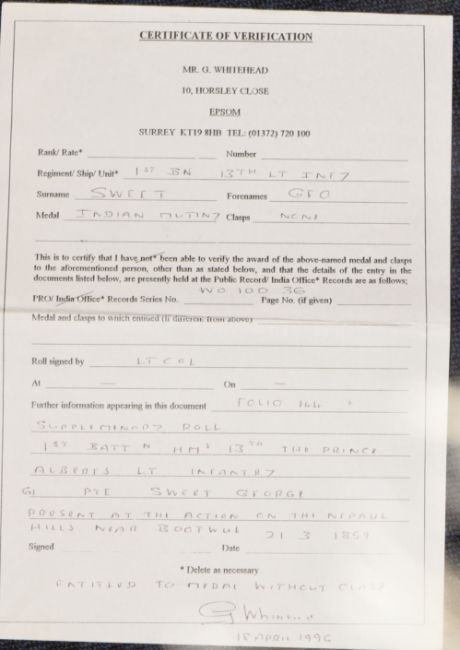 CERTIFICATE OF VERIFICATION
MR. G. WHITEHEAD
10, HORSLEY CLOSE
EPSOM
SURREY KT19 8HB TEL: (01372) 720 100
Rank/ Rate* Number
Regiment/ Ship/ Unit* 1ST BN 13TH LT INFY
Surname SWEET Forenames GEO
Medal INDIAN MUTINY Clasps NONE
This is to certify that I have not* been able to verify the award of the above-named medal and clasps
to the aforementioned person, other than as stated below, and that the details of the entry in the
documents listed below, are presently held at the Public Record/ India Office* Records are as follows;
PRO/ India Office* Records Series No. WO 100 36 Page No. (if given)
Medal and clasps to which entitled (if different from above)
Roll signed by LT COL
At — On —
Further information appearing in this document FOLIO 144
SUPPLEMINARY ROLL
1ST BATT N HMS 13TH THE PRINCE
ALBERTS LT INFANTRY
61 PTE SWEET GEORGE
PRESENT AT THE ACTION ON THE NEPAUL
HILLS NEAR BOOTWUL 21 3 1859
Signed Date
* Delete as necessary
ENTITLED TO MEDAL WITHOUT CLASP
G Whitehead
15 APRIL 1996